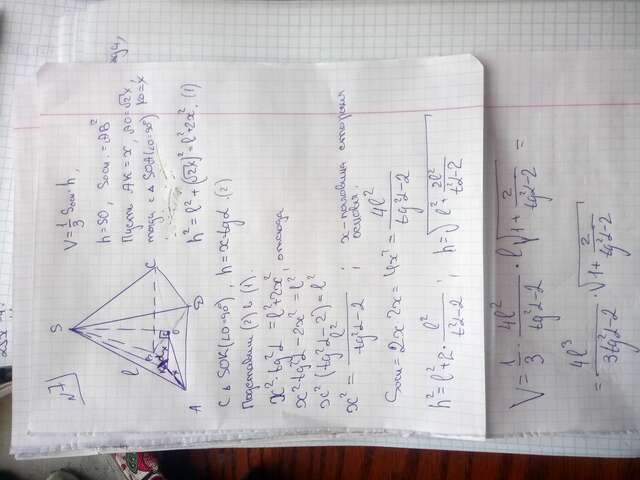 N7
S
l
A
B
C
D
O
K
x
α
V = 1/3 Sосн · h,
h = SO, Sосн. = AB²
Пусть AK = x, AO = √2x
тогда, с Δ SOA (∠O = 90°) KO = x
h² = l² + (√2x)² = l² + 2x². (1)
С Δ SOK (∠O = 90°), h = x tg α. (2)
Подставим (2) в (1).
x² · tg²α = l² + 2x²
x² tg²α − 2x² = l², откуда
x² (tg²α − 2) = l²
x² = l² / tg²α − 2 ; x – половина стороны основания.
Sосн = 2x · 2x = 4x² = 4l² / tg²α − 2
h² = l² + 2 · l² / tg²α − 2 ; h = √(l² + 2l² / tg²α − 2)
V = 1/3 · 4l² / tg²α − 2 · l √(1 + 2 / tg²α − 2) =
= 4l³ / 3tg²α − 2 · √(1 + 2 / tg²α − 2)